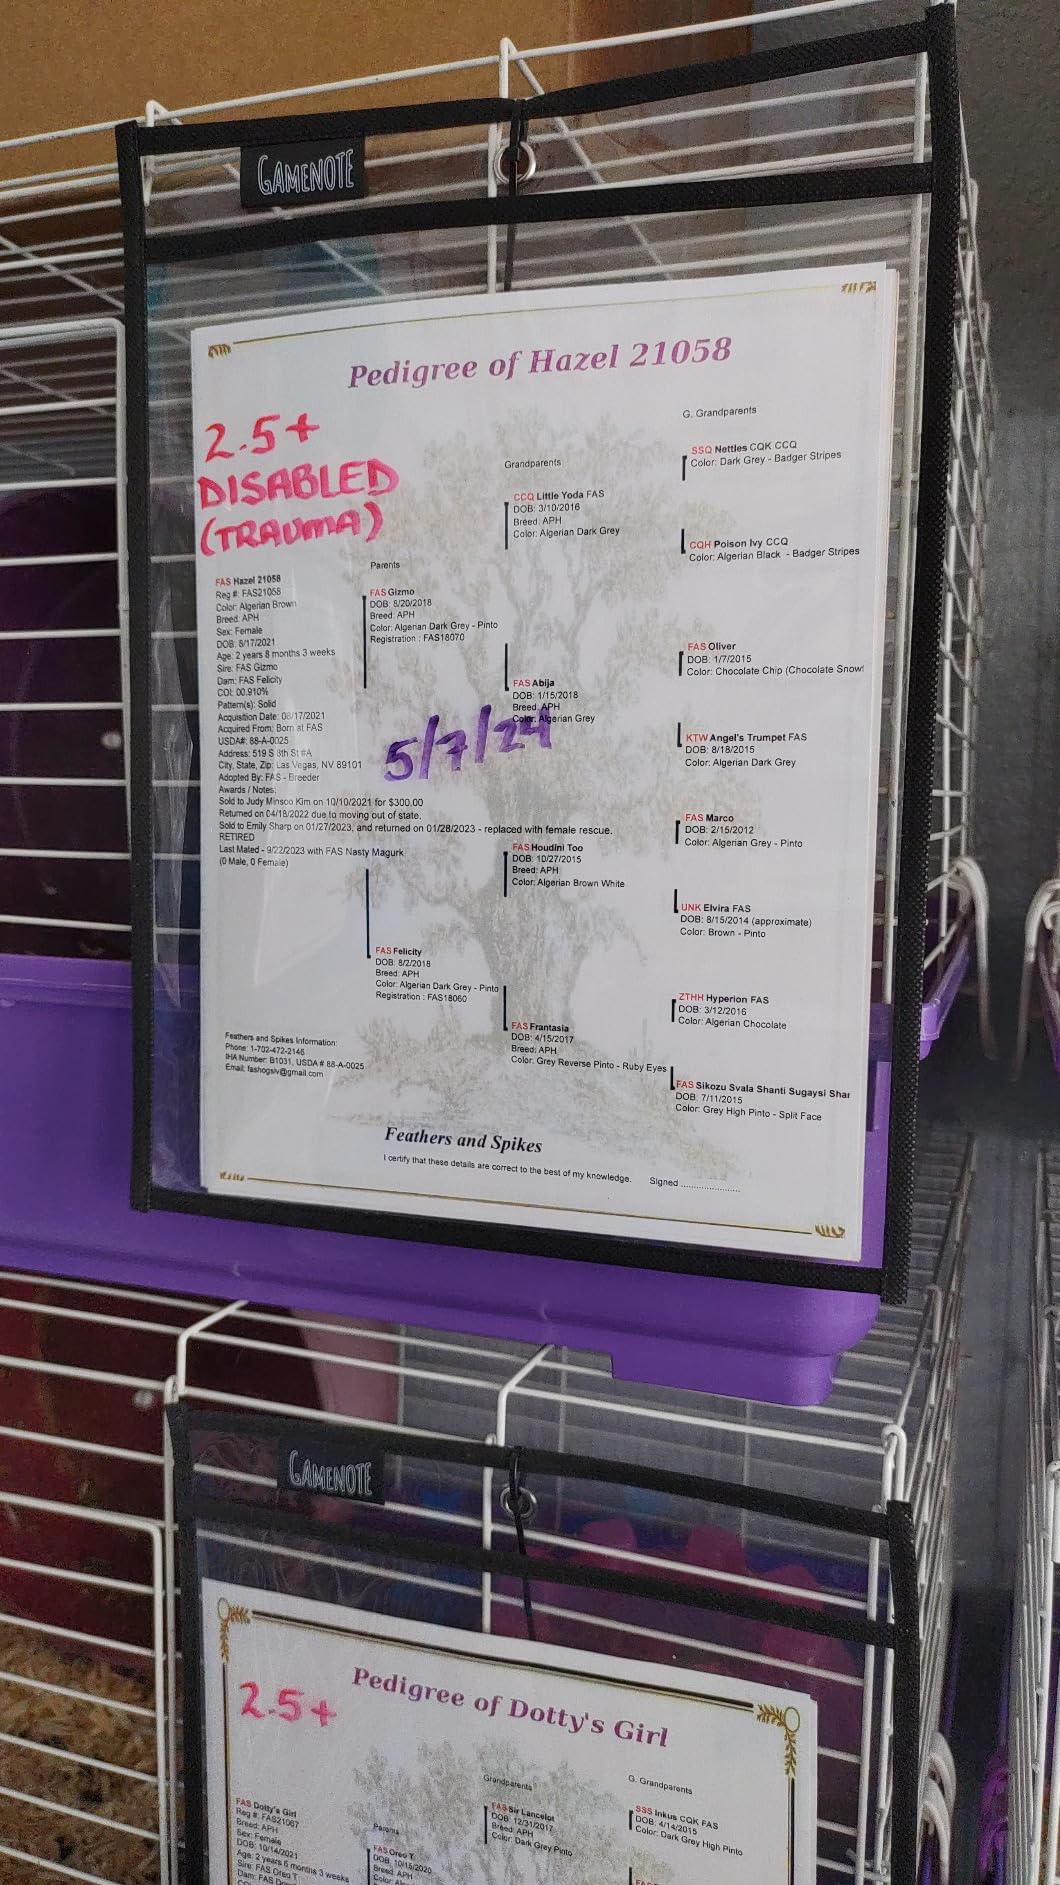 GAMENOTE
Pedigree of Hazel 21058
2.5+
DISABLED
(TRAUMA)
G. Grandparents
SSQ Nettles CQK CCQ
Color: Dark Grey - Badger Stripes
Grandparents
CCQ Little Yoda FAS
DOB: 3/10/2016
Breed: APH
Color: Algerian Dark Grey
CQH Poison Ivy CCQ
Color: Algerian Black - Badger Stripes
Parents
FAS Gizmo
DOB: 8/20/2018
Breed: APH
Color: Algerian Dark Grey - Pinto
Registration : FAS18070
FAS Oliver
DOB: 1/7/2015
Color: Chocolate Chip (Chocolate Snowf
FAS Abija
DOB: 1/15/2018
Breed: APH
Color: Algerian Grey
KTW Angel's Trumpet FAS
DOB: 8/18/2015
Color: Algerian Dark Grey
5/7/24
FAS Hazel 21058
Reg #: FAS21058
Color: Algerian Brown
Breed: APH
Sex: Female
DOB: 8/17/2021
Age: 2 years 8 months 3 weeks
Sire: FAS Gizmo
Dam: FAS Felicity
COI: 00.910%
Pattern(s): Solid
Acquisition Date: 08/17/2021
Acquired From: Born at FAS
USDA#: 88-A-0025
Address: 519 S 8th St #A
City, State, Zip: Las Vegas, NV 89101
Adopted By: FAS - Breeder
Awards / Notes:
Sold to Judy Minsoo Kim on 10/10/2021 for $300.00
Returned on 04/18/2022 due to moving out of state.
Sold to Emily Sharp on 01/27/2023, and returned on 01/28/2023 - replaced with female rescue.
RETIRED
Last Mated - 9/22/2023 with FAS Nasty Magurk
(0 Male, 0 Female)
FAS Marco
DOB: 2/15/2012
Color: Algerian Grey - Pinto
FAS Houdini Too
DOB: 10/27/2015
Breed: APH
Color: Algerian Brown White
UNK Elvira FAS
DOB: 8/15/2014 (approximate)
Color: Brown - Pinto
FAS Felicity
DOB: 8/2/2018
Breed: APH
Color: Algerian Dark Grey - Pinto
Registration : FAS18060
ZTHH Hyperion FAS
DOB: 3/12/2016
Color: Algerian Chocolate
FAS Frantasia
DOB: 4/15/2017
Breed: APH
Color: Grey Reverse Pinto - Ruby Eyes
FAS Sikozu Svala Shanti Sugaysi Shar
DOB: 7/11/2015
Color: Grey High Pinto - Split Face
Feathers and Spikes Information:
Phone: 1-702-472-2146
IHA Number: B1031, USDA # 88-A-0025
Email: fashogslv@gmail.com
Feathers and Spikes
I certify that these details are correct to the best of my knowledge. Signed ......................
GAMENOTE
Pedigree of Dotty's Girl
2.5+
Grandparents
G. Grandparents
FAS Sir Lancelot
DOB: 12/31/2017
Breed: APH
Color: Dark Grey Pinto
SSS Inkus CQK FAS
DOB: 4/14/2015
Color: Dark Grey High Pinto
Parents
FAS Oreo T
DOB: 10/15/2020
Breed: APH
FAS Dotty's Girl
Reg #: FAS21067
Breed: APH
Sex: Female
DOB: 10/14/2021
Age: 2 years 6 months 3 weeks
Sire: FAS Oreo T